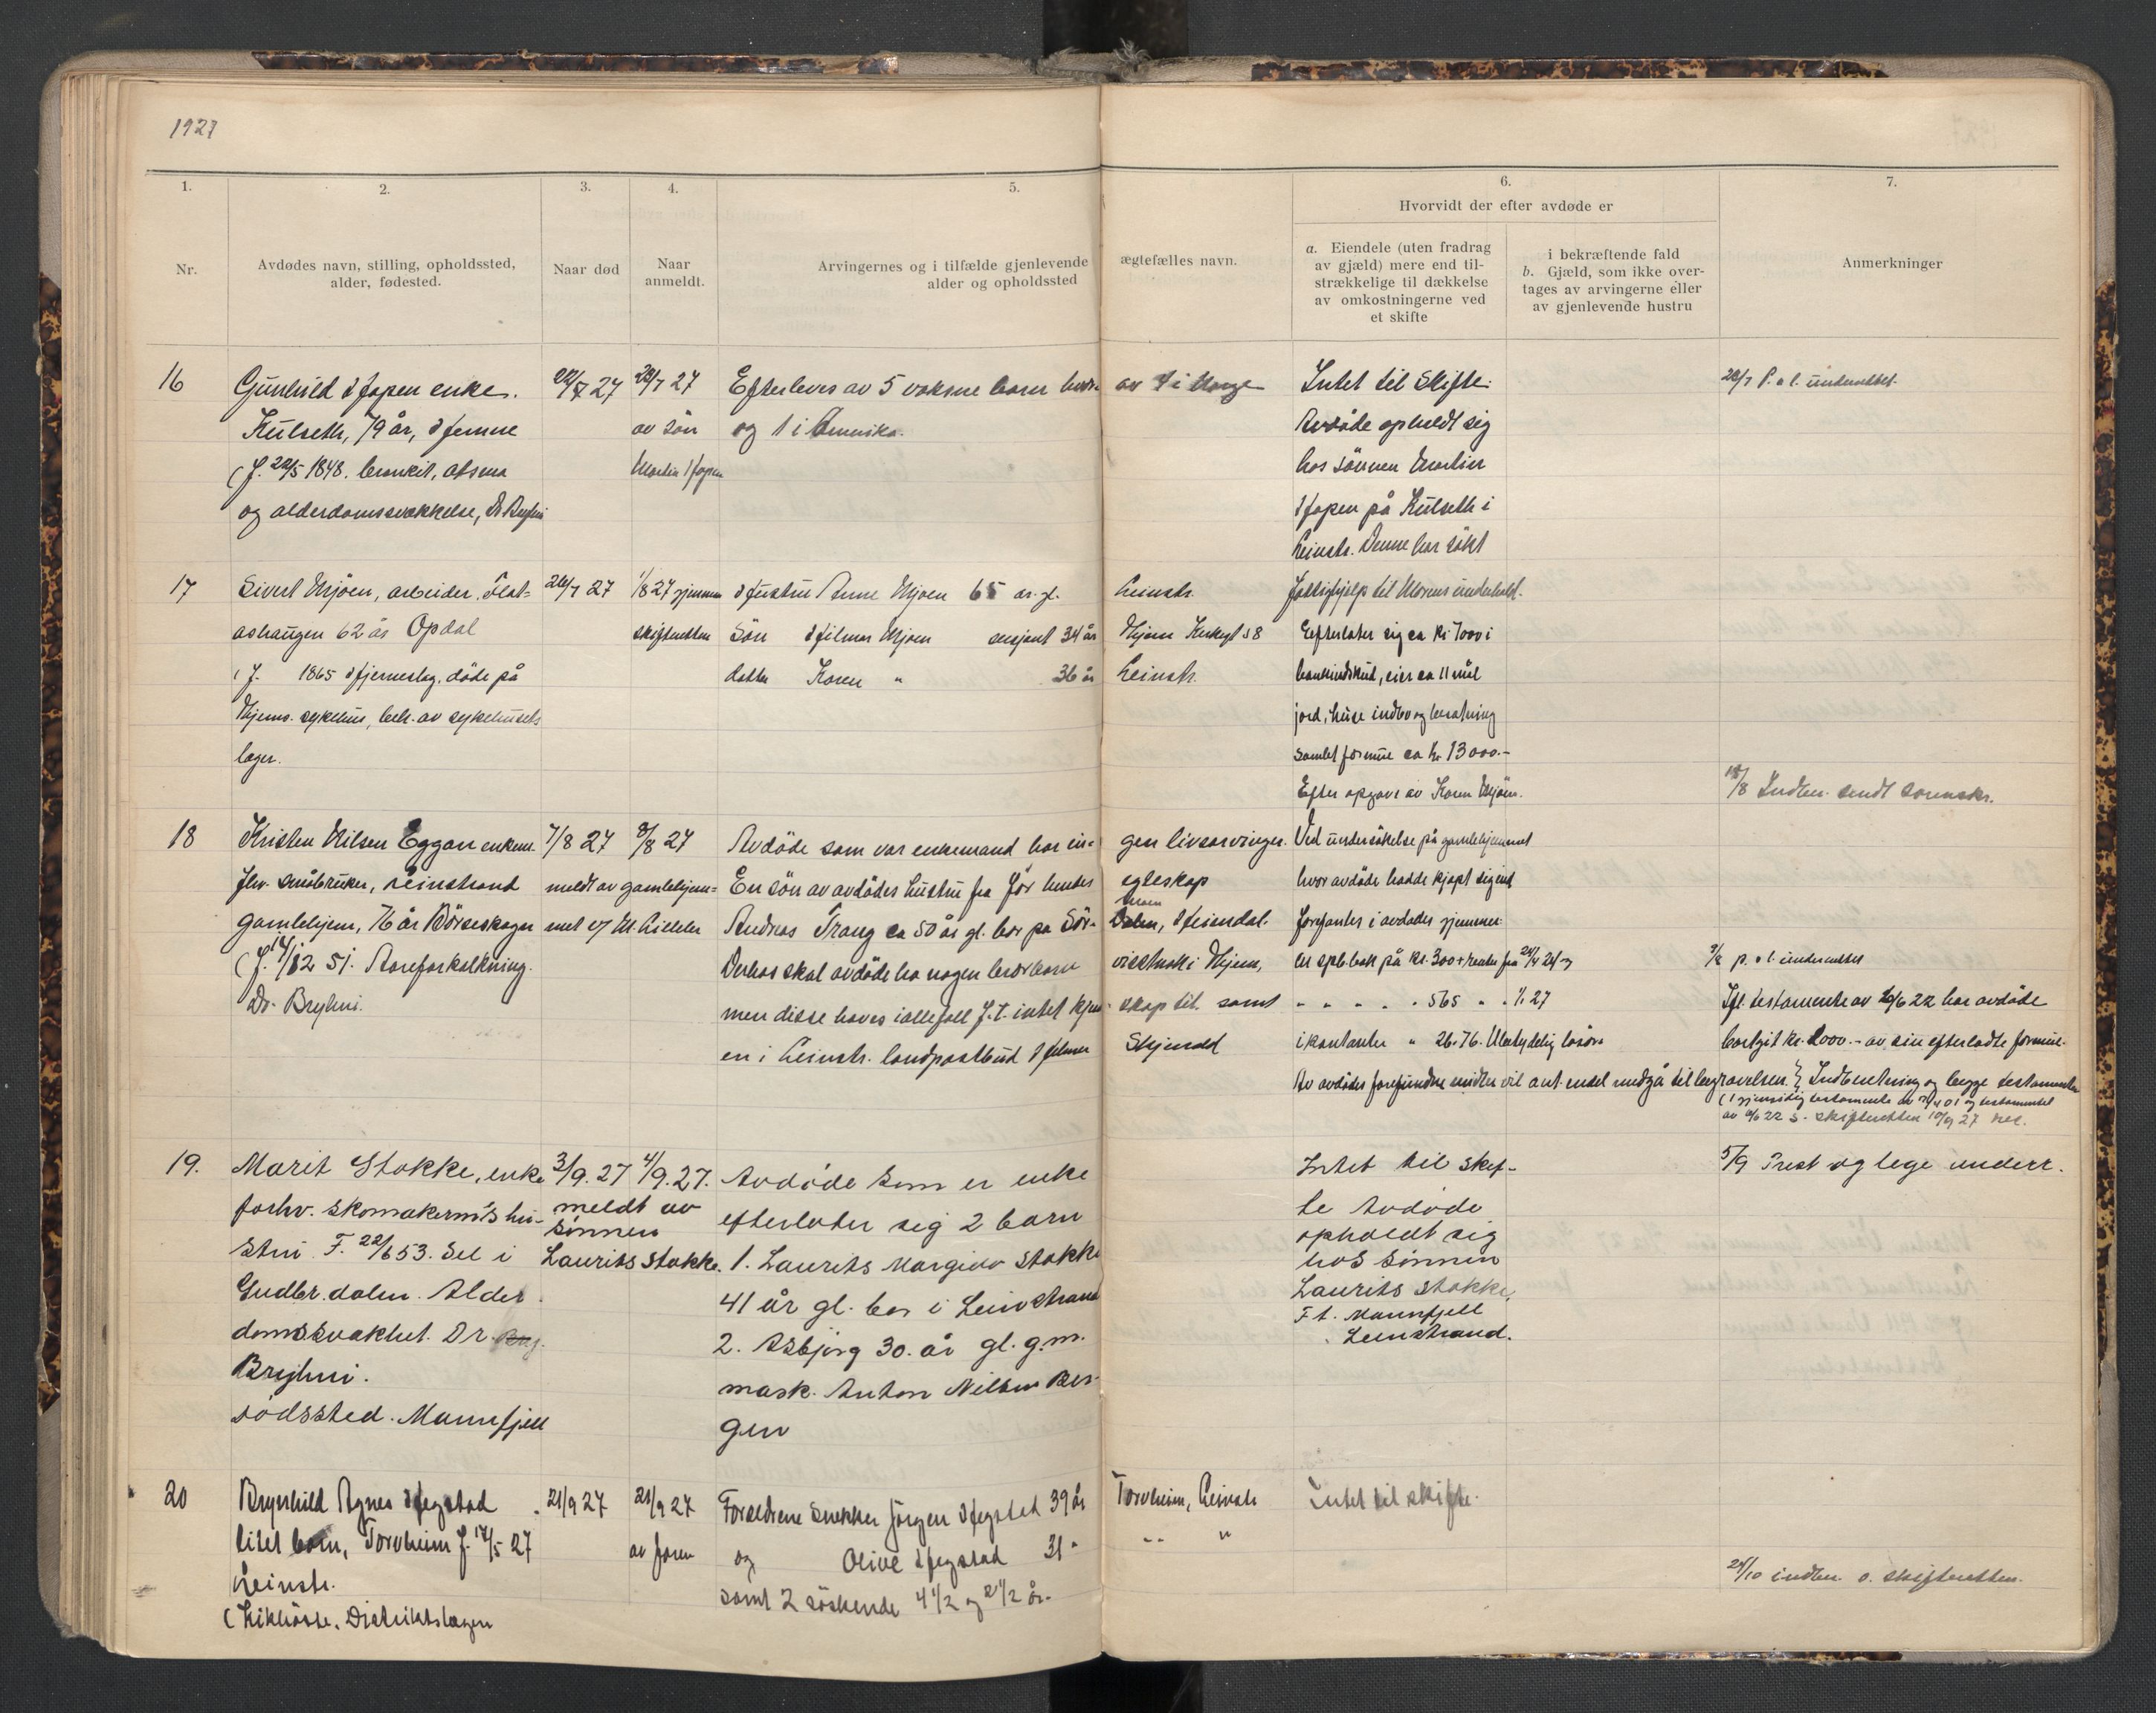 1927
1.
2.
3.
4.
5.
6.
7.
Hvorvidt der efter avdøde er
Nr.
Avdødes navn, stilling, opholdssted,
alder, fødested.
Naar død
Naar
anmeldt.
Arvingernes og i tilfælde gjenlevende
alder og opholdssted
ægtefælles navn.
a. Eiendele (uten fradrag
av gjæld) mere end til-
strækkelige til dækkelse
av omkostningerne ved
et skifte
i bekræftende fald
b. Gjæld, som ikke over-
tages av arvingerne eller
av gjenlevende hustru
Anmerkninger
16
Gunhild Hopen enke.
Kulseth, 79 år, Hemne
(f. 22/5 1848. bronkit, atsma
og alderdomssvækkelse, Dr Bryhni
22/7 27
23/7 27
av sön
Martin Hopen
Efterleves av 5 voksne barn hvor- av 4 i Norge
og 1 i Amerika.
Intet til Skifte.
Avdöde opholdt sig
hos sönnen Martin
Hopen på Kulseth i
Leinstr. Denne har sökt
fattighjelp til Morens underhold.
23/7 P. o l. underrettet.
17
Sivert Mjöen, arbeider, Flat-
åshaugen 62 år Opdal
(f. 1865 Hjerneslag, döde på
Thjems. sykehus, beh. av sykehusets
læger.
26/7 27
1/8 27 gjennem
skifteretten
Hustru Anne Mjöen 65 år. gl. Leinstr.
Sön Hilmar Mjöen 34 år Thjem
datter Karen " 36 år Leinstr.
Eefterlater sig ca kr. 7000 i
bankindskud, eier ca 11 mål
jord, huse indbo og besætning
samlet formue ca kr. 13000.-
Efter opgave av Karen Mjöen.
18/8 Indber. sendt sorenskr.
18
Kristen Nilsen Eggan enkem.
fhv. småbruker, Leinstrand
gamlehjem, 76 år Börseskogn
(f. 14/12 51. Aareforkalkning.
Dr. Bryhni.
7/8 27
8/8 27
meldt av gamlehjem-
met v/ M. Lilleler
Avdöde som var enkemand har in- gen livsarvinger.
En sön av avdödes hustru fra för hendes egteskap
Andreas Trang ca 50 år gl. bor på Sör- Dalen, Heimdal.
Derhos skal avdöde ha nogen brorbarn visstnok i Thjem,
men disse haves iallefall f.t. intet kjen- skap til. samt
en i Leinstr. landpostbud Hilmar Skjendal
Ved undersökelse på gamlehjemmet
hvor avdöde hadde kjöpt sig ind
forefantes i avdödes gjemmer:
en spb.bok på kr. 300 + renter fra 24/4 24 og
" " " " " 565 " " 1/1 27
i kontanter " 26.76. Ubetydelig lösöre
Av avdödes forefundne midler vil ant. endel medgå til begravelsen.
9/8 p. o l. underrettet
Ifl. testamente av 20/6 22 har avdöde
bortgit kr. 2000.- av sin efterlatte formue.
Indberetning og begge testamenter
(1 gjensidig testamente av 7/4 01 og testamentet
av 20/6 22 s. skifteretten 10/9 27
19.
Marit Stokke, enke
forhv. skomakerm's hu-
stru. F. 22/6 53. Sel i
Gudbr.dalen. Alder-
domssvakhet. Dr.
Bryhni.
dödssted. Munnfjell
3/9. 27
4/9. 27.
meldt av
sönnen
Laurits Stokke.
Avdöde som er enke
efterlater sig 2 barn
1. Laurits Margido Stokke
41 år gl. bor i Leinstrand
2. Asbjörg 30. år gl. g.m.
mask. Anton Nilsen Ber-
gen
Intet til skif-
te Avdöde
opholdt sig
hos sönnen
Laurits Stokke,
F t. Munnfjell
Leinstrand.
5/9 Prest og lege underr.
20
Brynhild Agnes Hegstad
litet barn, Torvheim f. 14/5 27
Leinstr.
(Kikhöste. Distriktslægen
21/9 27
21/9 27
av faren
Forældrene Snekker Jörgen Hegstad 39 år Torvheim, Leinstr
og Olive Hegstad 31 " " "
samt 2 söskende 4 1/2 og 2 1/2 år.
Intet til skifte.
24/10 indber. s. skifteretten.